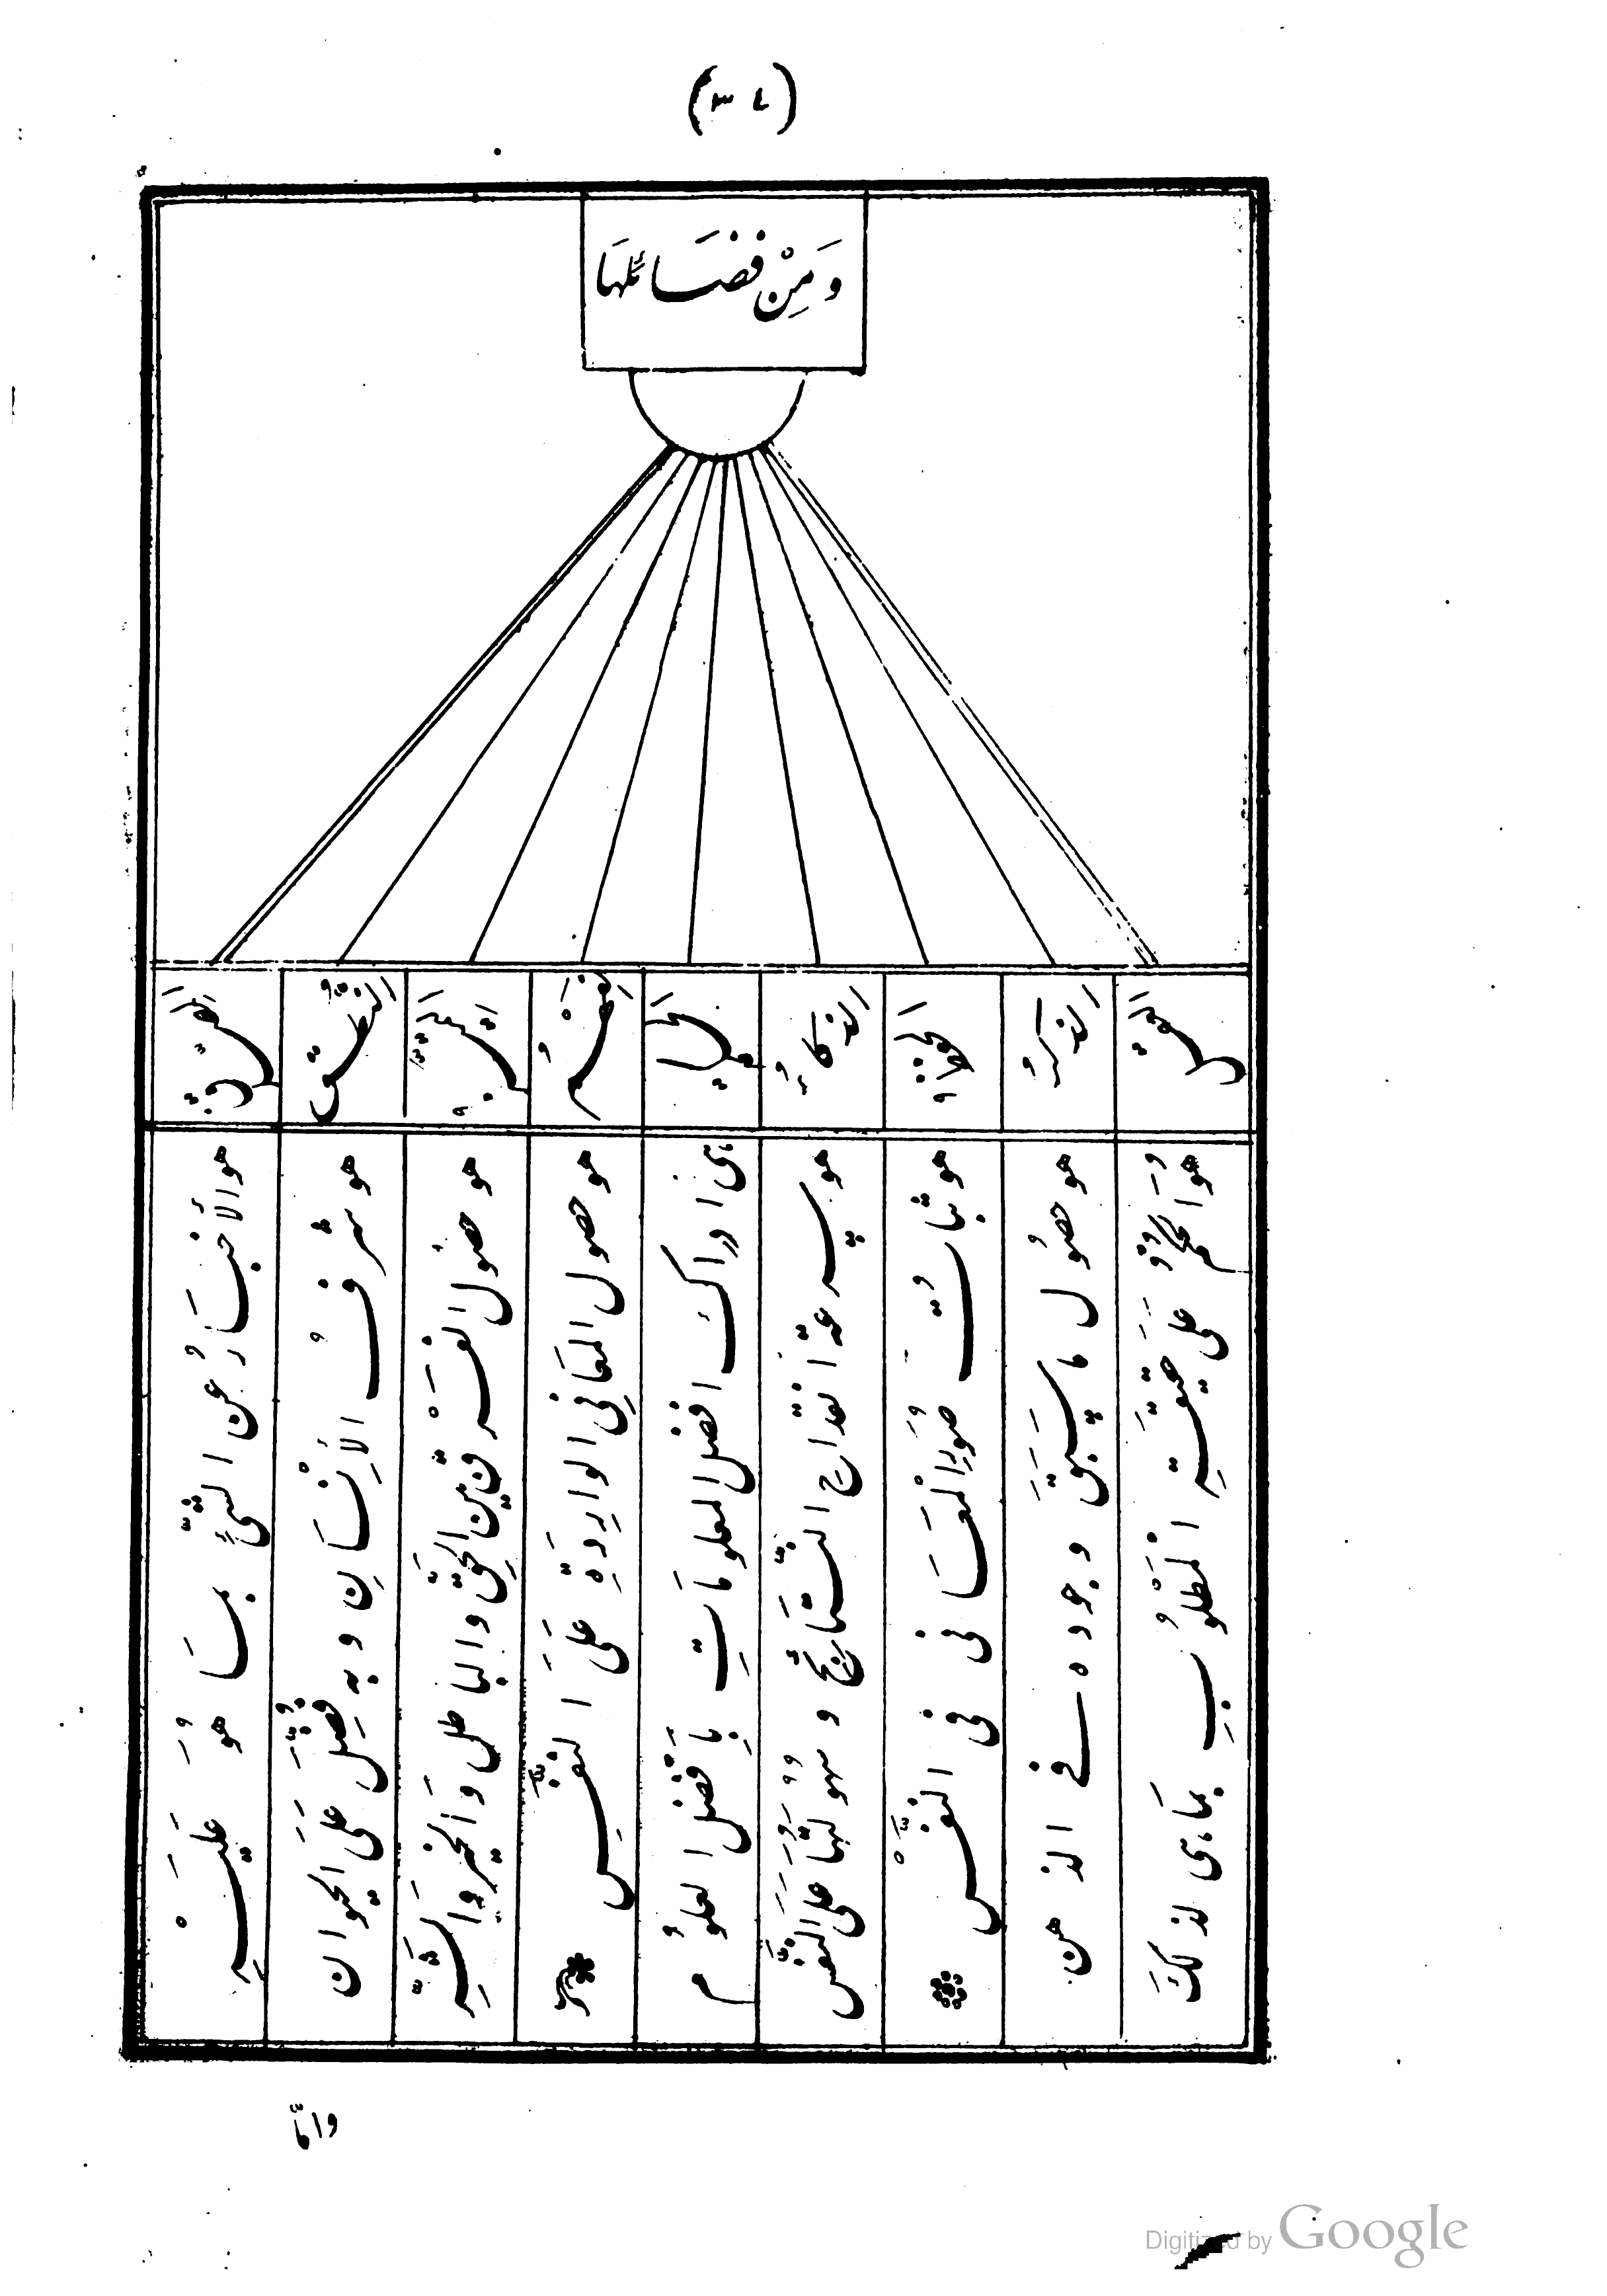 (٣٤)
وَمِنْ فضَائلهَا
هُوَ الحُكْمُ عَلَى حَقِيقَةِ الْمَطْلُوبِ بمَاهى لذلكَ
الذكرُ
هو حصُول ما سَبَقَ وجوده فى الذهن
الحفظ
هو ثباتُ صُوَرِ الْمعَانى فى النفْس
الذكاءُ
هو سرعة انقداح النتَائج وسهولتها على النفس
هى ادراك افضل المعلومَاتِ بِأفْضَل العلوُم
الفَهْمُ
هو حصول المعَانِى الوارِدَةِ عَلَى النفسِ
هو حصُول الفَرْق بين الحق والباطل وَالخير والشَّرِ
النُّطْق
هو شرفُ الإنْسَانِ وبه فُضِّلَ عَلَى الحيوان
هو الأخبَارُ عن الشئ بمَا هُوَ عَلَيْهِ
Digitized by Google